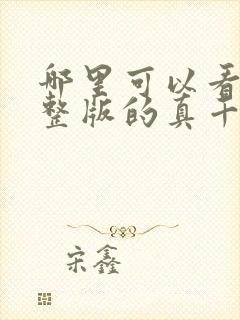 哪里可以看
整版的真十
宋鑫